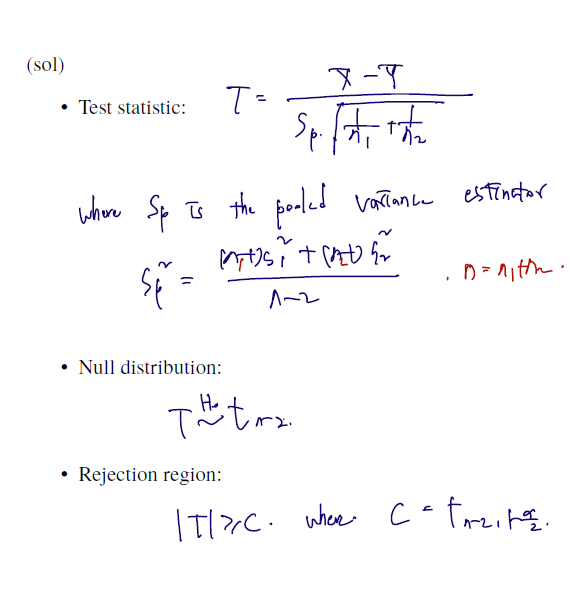 (sol)
• Test statistic: T = (X̄ − Ȳ) / (Sp · √(1/n₁ + 1/n₂))
where Sp is the pooled variance estimator
Sp² = ((n₁−1)S₁² + (n₂−1)S₂²) / (n−2) , n = n₁+n₂ .
• Null distribution:
T ~ᴴ⁰ t n−2 .
• Rejection region:
|T| ≥ C . where C = t n−2, 1−α/2 .